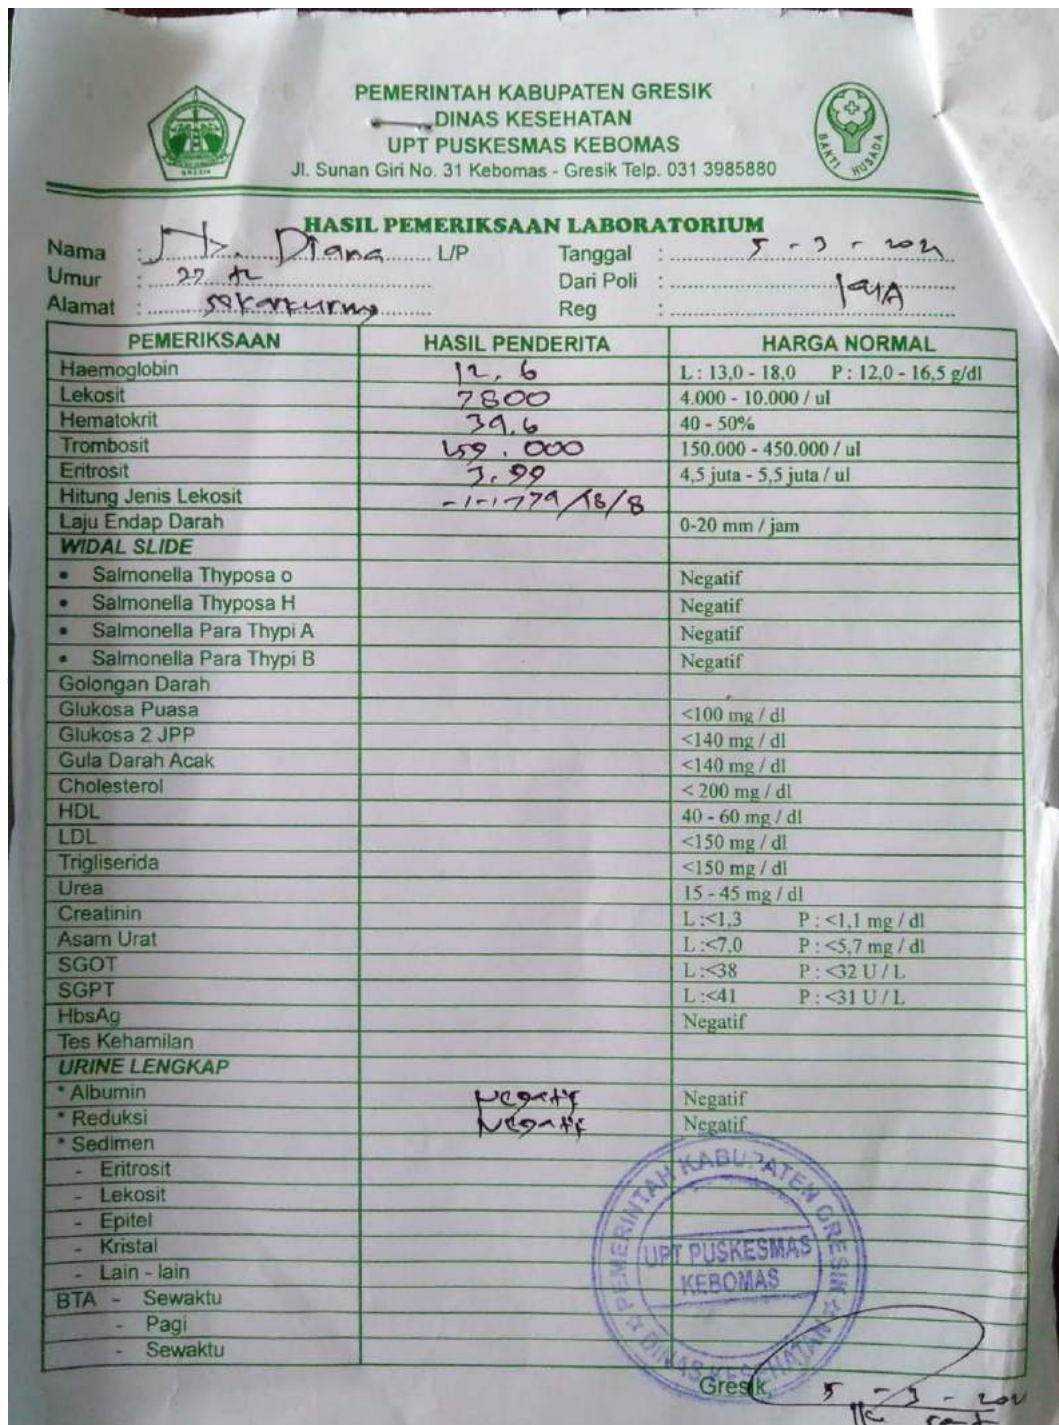 PEMERINTAH KABUPATEN GRESIK
DINAS KESEHATAN
UPT PUSKESMAS KEBOMAS
Jl. Sunan Giri No. 31 Kebomas - Gresik Telp. 031 3985880
GRESIK
BAKTI HUSADA
HASIL PEMERIKSAAN LABORATORIUM
Nama : Diana L/P Tanggal : 5 - 3 - 2021
Umur : 27 Dari Poli :
Alamat : Reg :
PEMERIKSAAN HASIL PENDERITA HARGA NORMAL
Haemoglobin 12,6 L : 13,0 - 18,0 P : 12,0 - 16,5 g/dl
Lekosit 7800 4.000 - 10.000 / ul
Hematokrit 39,6 40 - 50%
Trombosit 150.000 - 450.000 / ul
Eritrosit 3,99 4,5 juta - 5,5 juta / ul
Hitung Jenis Lekosit
Laju Endap Darah 0-20 mm / jam
WIDAL SLIDE
• Salmonella Thyposa o Negatif
• Salmonella Thyposa H Negatif
• Salmonella Para Thypi A Negatif
• Salmonella Para Thypi B Negatif
Golongan Darah
Glukosa Puasa <100 mg / dl
Glukosa 2 JPP <140 mg / dl
Gula Darah Acak <140 mg / dl
Cholesterol < 200 mg / dl
HDL 40 - 60 mg / dl
LDL <150 mg / dl
Trigliserida <150 mg / dl
Urea 15 - 45 mg / dl
Creatinin L :<1,3 P : <1,1 mg / dl
Asam Urat L :<7,0 P : <5,7 mg / dl
SGOT L :<38 P : <32 U / L
SGPT L :<41 P : <31 U / L
HbsAg Negatif
Tes Kehamilan
URINE LENGKAP
* Albumin Negatif Negatif
* Reduksi Negatif Negatif
* Sedimen
- Eritrosit
- Lekosit
- Epitel
- Kristal
- Lain - lain
BTA - Sewaktu
- Pagi
- Sewaktu
PEMERINTAH KABUPATEN GRESIK
UPT PUSKESMAS
KEBOMAS
DINAS KESEHATAN
Gresik, 5 - 3 -